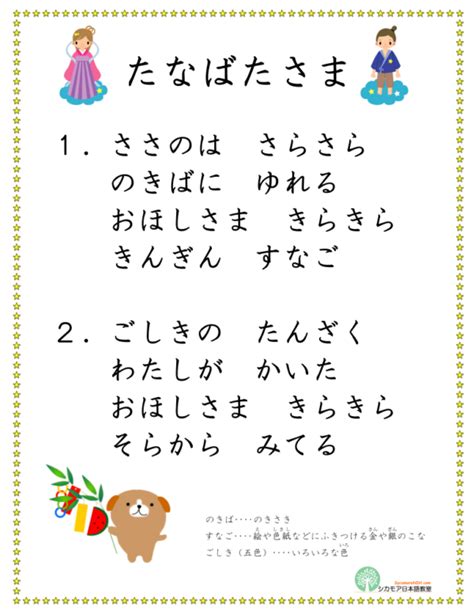 たなばたさま
1. ささのは さらさら
のきばに ゆれる
おほしさま きらきら
きんぎん すなご
2. ごしきの たんざく
わたしが かいた
おほしさま きらきら
そらから みてる
のきば‥‥のきさき
すなご‥‥絵や色紙などにふきつける金や銀のこな
ごしき（五色）‥‥いろいろな色
シカモア日本語教室